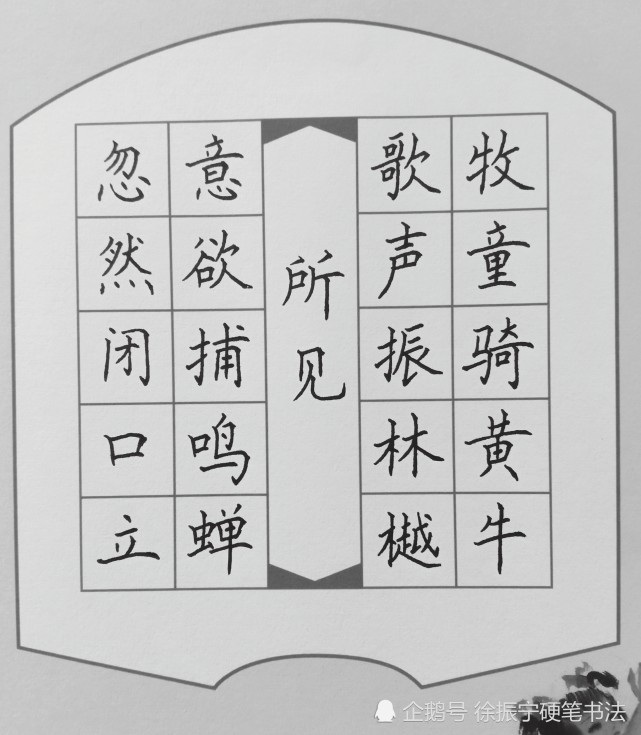 牧童骑黄牛
歌声振林樾
所见
意欲捕鸣蝉
忽然闭口立
企鹅号 徐振宇硬笔书法